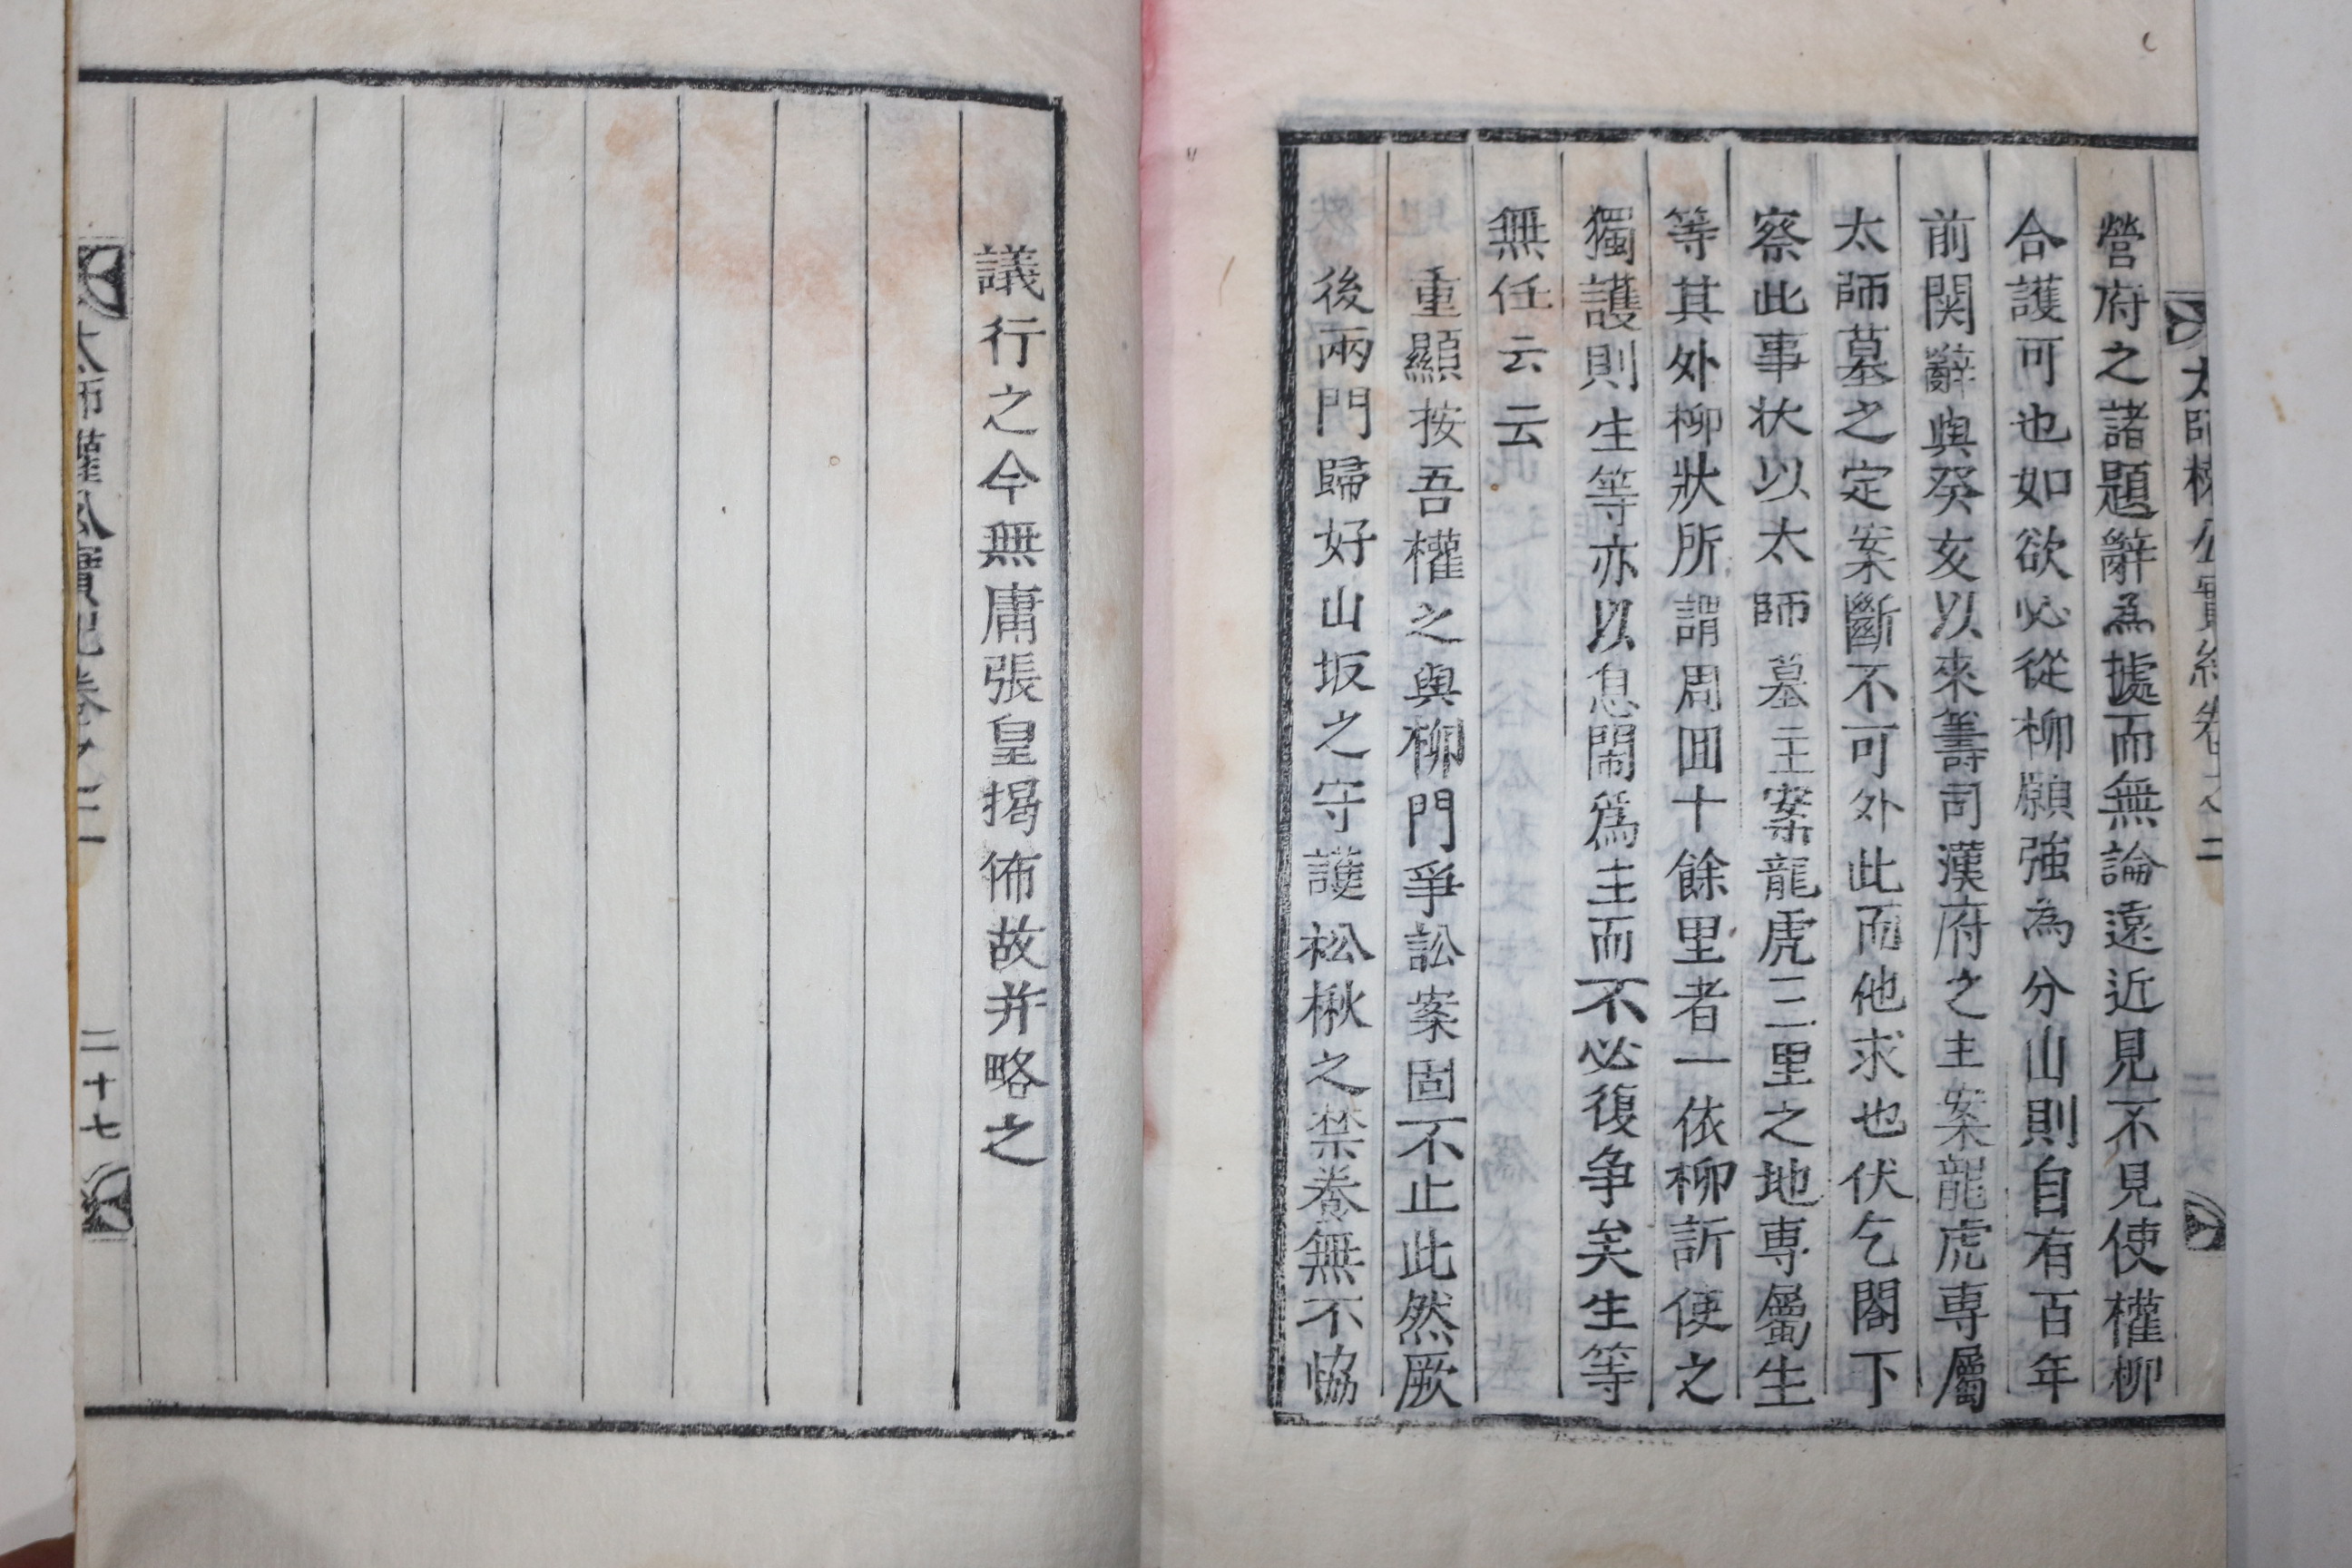 太師權公實紀卷之二
營府之諸題辭為據而無論遠近見不見使權柳
合護可也如欲必從柳願強為分山則自有百年
前関辭與癸亥以來籌司漢府之主案龍虎專屬
太師墓之定案斷不可外此而他求也伏乞閤下
察此事状以太師墓主案龍虎三里之地専屬生
等其外柳狀所謂周囬十餘里者一依柳訴使之
獨護則生等亦以息閙爲主而不必復争矣生等
無任云云
重顯按吾權之與柳門爭訟案固不止此然厥
後兩門歸好山坂之守護松楸之禁養無不恊
議行之今無庸張皇揭佈故并略之
太師權公實紀卷之二
二十七